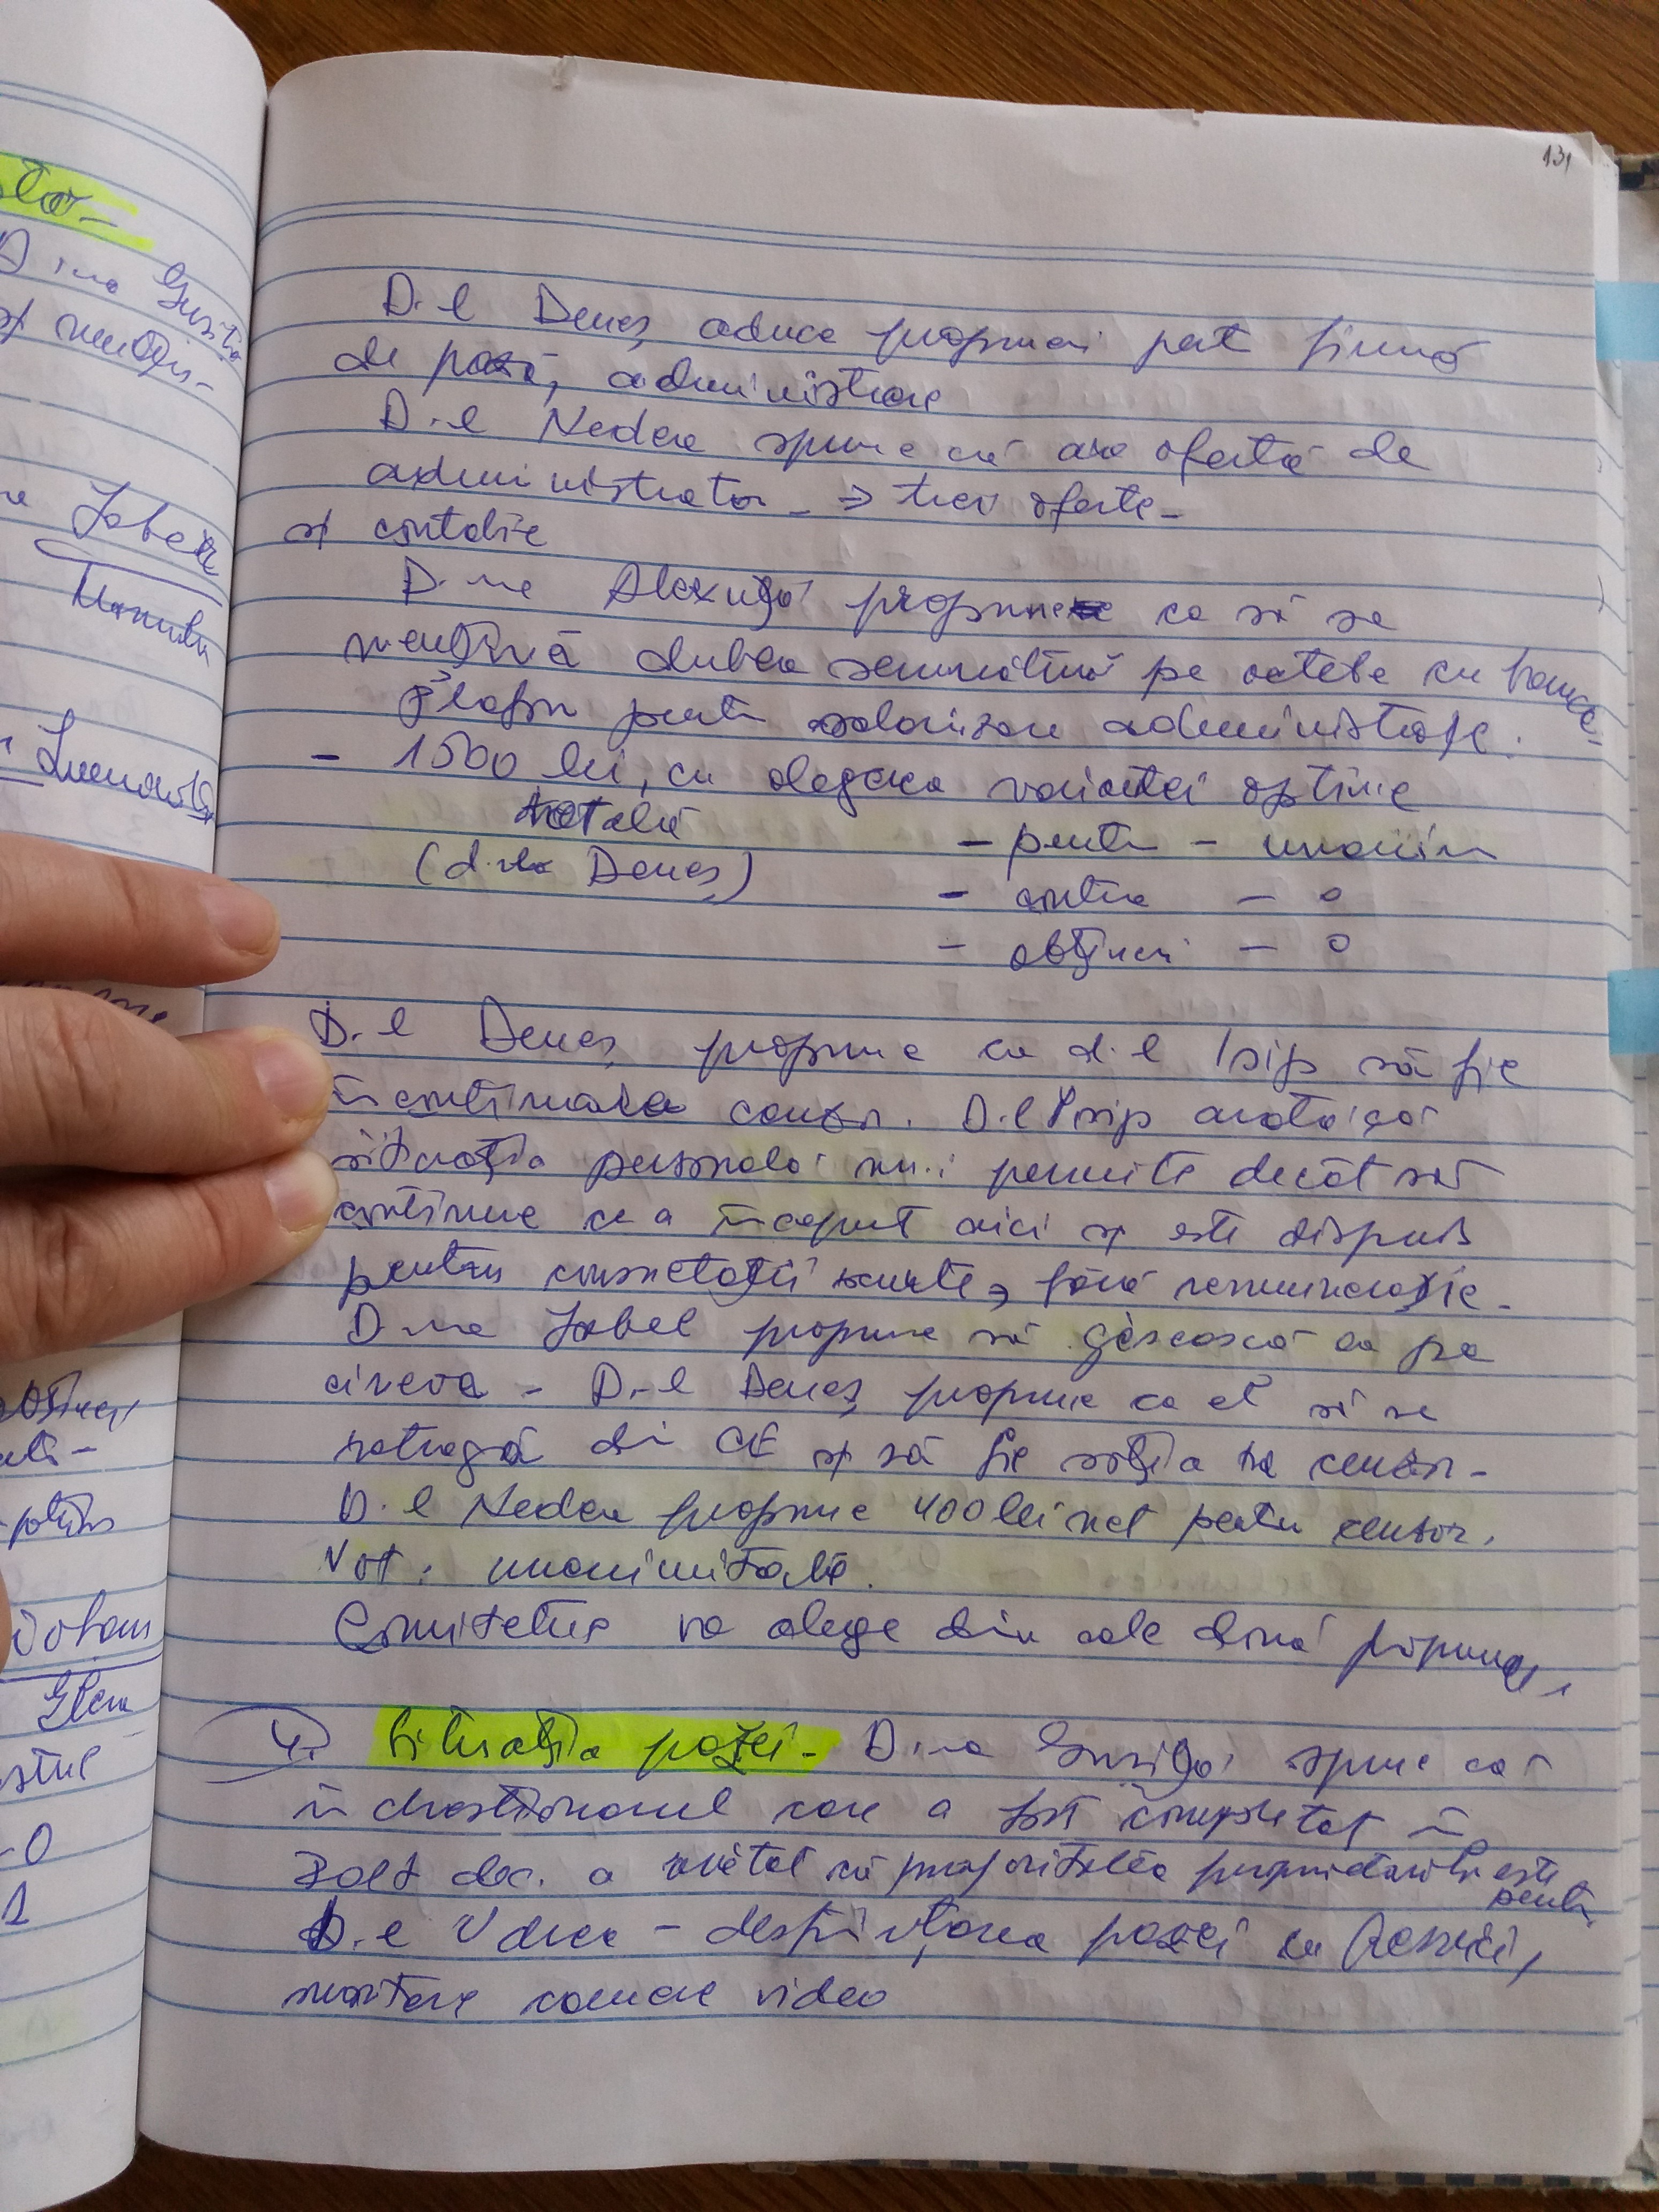 131
D-l Deneș aduce propuneri pct firmă
de pază, administrare
D-l Nedea spune că are ofertă de
administrator - => trei oferte -
și contabile
D-na Alexuță propune ca să se
mențină dubla semnătură pe actele cu banca -
Plafon pentru salarizare administrație.
- 1500 lei, cu alegerea variantei optime
totală
(d-na Deneș)
- pentru - unanim
- contra - 0
- abțineri - 0
D-l Deneș propune ca d-l Isip să fie
în continuare cenzor. D-l Isip arată că
situația personală nu-i permite decât să
continue ce a început aici și este dispus
pentru consultații scurte, fără remunerație -
D-na Jabel propune să găsească ea pe
cineva - D-l Deneș propune ca el să se
retragă din CE și să fie soția sa cenzor -
D-l Nedea propune 400 lei net pentru cenzor.
Vot: unanimitate.
Comitetul va alege din cele două propuneri
4. Situația pazei - D-na Guriță spune că
în chestionarul care a fost completat în
dec. a arătat că majoritatea proprietarilor este
pentru
D-l Udrea - desființarea pazei cu oameni,
montare camere video
D-na
Jabel
- 0
1